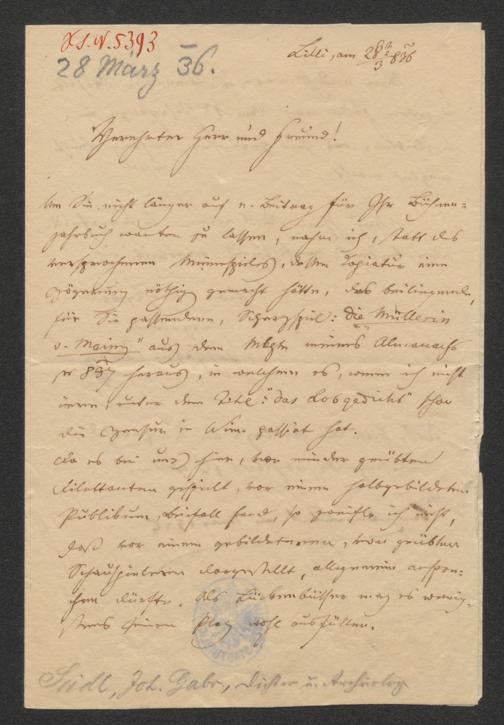 H.I.N. 5393
28 März 36.
Cilli, am 28/3 836
Verehrter Herr und Freund!
Um Sie nicht länger auf e. Beitrag für Ihr Bühnen=
jahrbuch warten zu lassen, nahm ich, statt des
versprochenen, dessen Copiatur eine
Zögerung nöthig gemacht hätte, das beiliegende,
für Sie passendere, Scherzspiel: "Die Müllerin
v. Mainz" aus dem Mspte meines Almanachs
837 heraus, in welchem es, wenn ich nicht
irre, unter dem Titel: "das Lobgedicht" schon
die Censur in Wien passirt hat.
Da es bei uns hier, von minder geübten
Dilettanten gespielt, vor einem halbgebildeten
Publikum, Beifall fand, so zweifle ich nicht,
daß vor einem gebildeteren, von geübten
Schauspielern dargestellt, allgemein anspre=
chen dürfte. Als Lückenbüßer mag es wenig=
stens seinen Platz wohl ausfüllen.
Seidl, Joh. Gabr., Dichter u. Archäolog